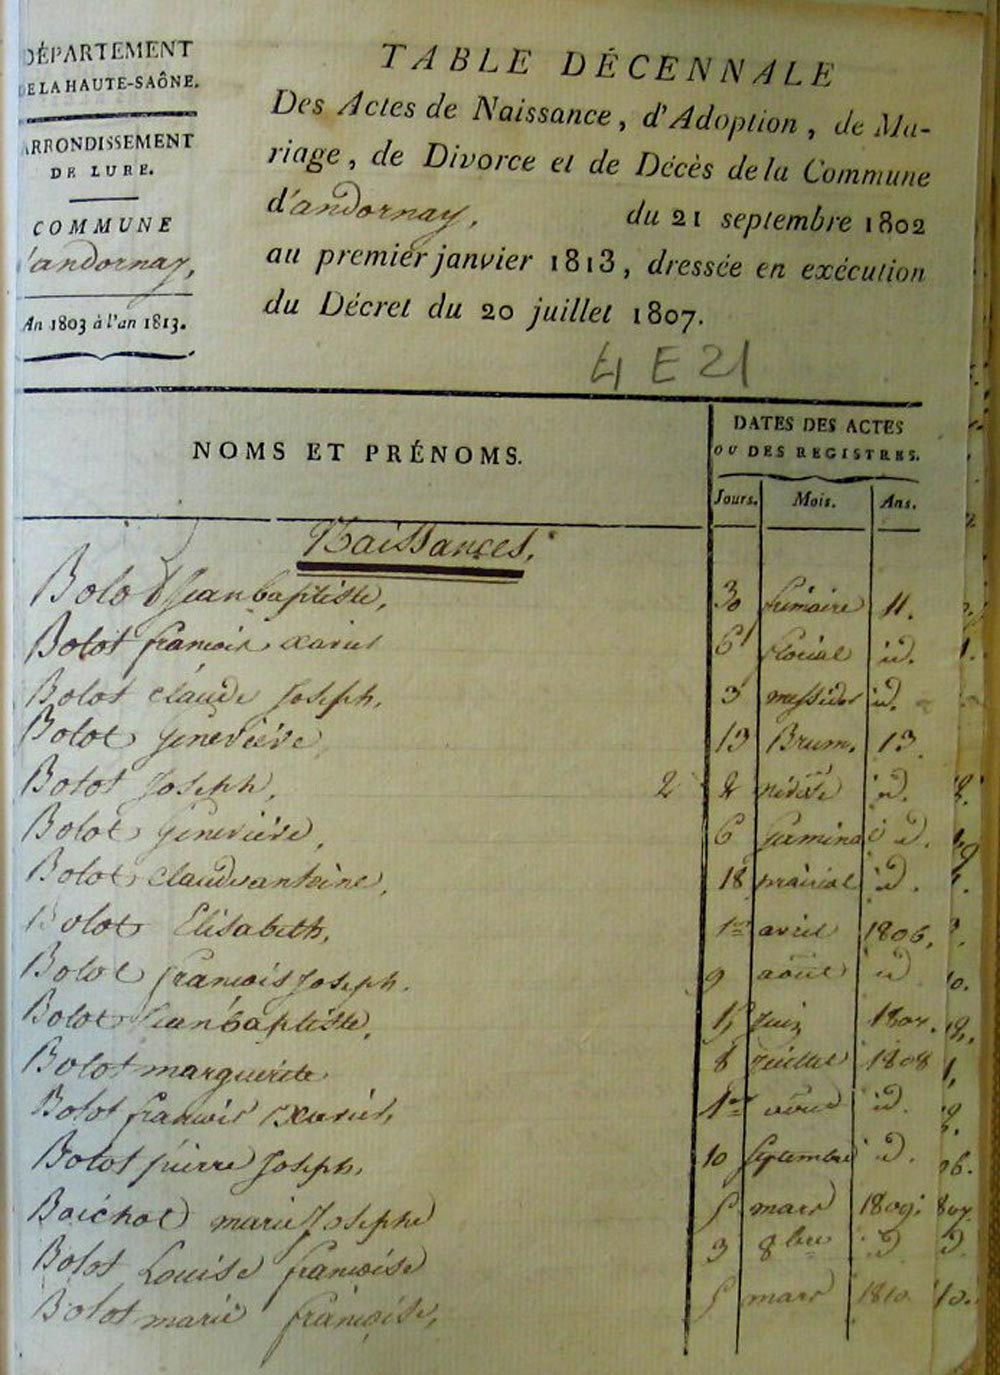 DÉPARTEMENT
DE LA HAUTE-SAÔNE.
ARRONDISSEMENT
DE LURE.
COMMUNE
d'andornay,
An 1803 à l'an 1813.
TABLE DÉCENNALE
Des Actes de Naissance, d'Adoption, de Ma-
riage, de Divorce et de Décès de la Commune
d'andornay, du 21 septembre 1802
au premier janvier 1813, dressée en exécution
du Décret du 20 juillet 1807.
4 E 21
NOMS ET PRÉNOMS.
DATES DES ACTES
OU DES REGISTRES.
Jours. Mois. Ans.
Naissances.
Bolot Jean baptiste, 30 frimaire 11.
Botot francois xavier 6 floréal id.
Botot claude Joseph, 3 messidor id.
Botot Geneviève 13 Brum. 13
Botot Joseph, 2 2 nivose id.
Botot Geneviève, 6 Germinal id.
Botot claude antoine, 18 prairial id.
Botot Elisabeth, 1er avril 1806,
Botot francois Joseph. 9 août id
Botot Jean baptiste, 15 Juin 1807.
Botot marguerite 8 Juillet 1808
Botot francois Xavier, 1er août id.
Botot pierre Joseph, 10 septembre id.
Boichot marie Josephe 5 mars 1809.
Botot Louise francoise 3 8bre id
Botot marie françoise, 5 mars 1810